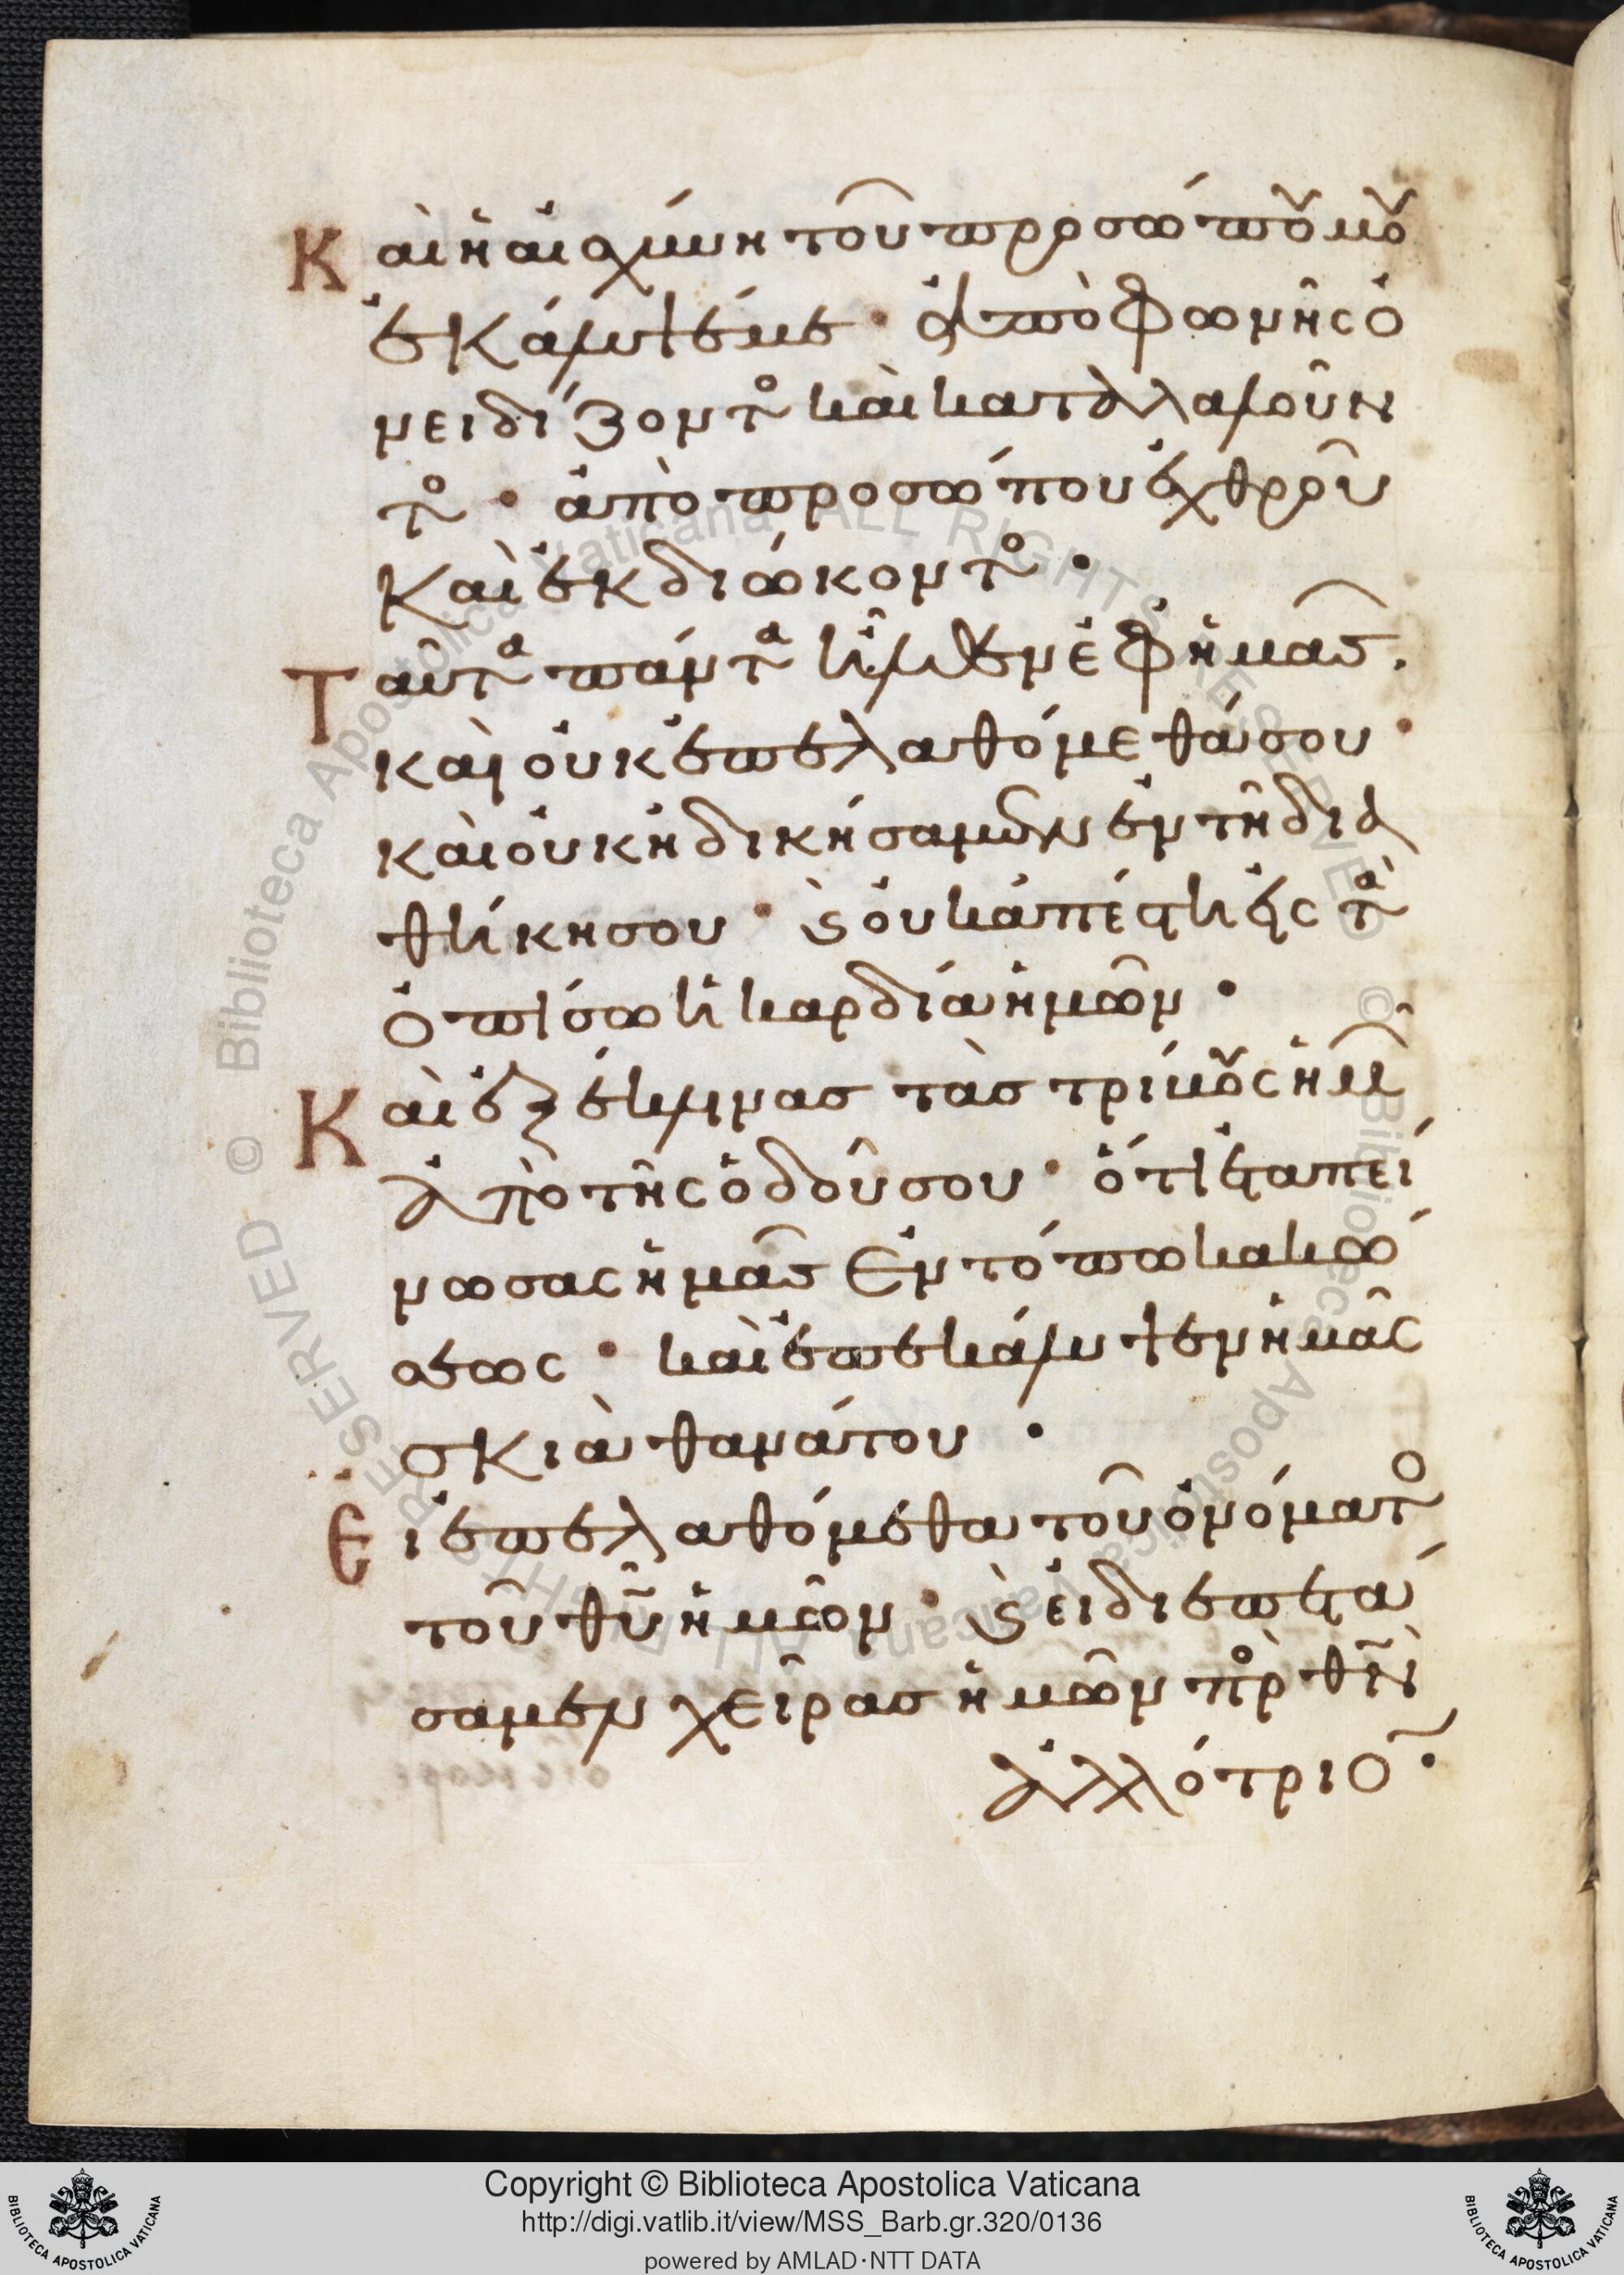 Καὶ ἡ αἰσχύνη τοῦ προσώπου μου
ἐκάλυψέ με· ἀπὸ φωνῆς ὀ
νειδίζοντο καὶ καταλαλοῦν
το· ἀπὸ προσώπου ἐχθροῦ
καὶ ἐκδιώκοντο·
Ταῦτα πάντα ἦλθεν ἐφ ἡμᾶς.
καὶ οὐκ ἐπελαθόμεθά σου·
καὶ οὐκ ἠδικήσαμεν ἐν τῆ δια
θήκη σου· ϗ οὐκ ἀπέστη εἰς τὰ
ὀπίσω ἡ καρδία ἡμῶν·
Καὶ ἐξέκλινας τὰς τρίβους ἡμ
ἀπὸ τῆς ὁδοῦ σου· ὅτι ἐταπεί
νωσας ἡμᾶς ἐν τόπω κακώ
σεως· καὶ ἐπεκάλυψεν ἡμᾶς
σκιὰ θανάτου·
Εἰ ἐπελαθόμεθα τοῦ ὀνόματο
τοῦ θῦ ἡμῶν· ϗ εἰ διεπετά
σαμεν χεῖρας ἡμῶν πρ θν
ἀλλότριο·
Copyright © Biblioteca Apostolica Vaticana
http://digi.vatlib.it/view/MSS_Barb.gr.320/0136
powered by AMLAD·NTT DATA
BIBLIOTECA APOSTOLICA VATICANA
BIBLIOTECA APOSTOLICA VATICANA